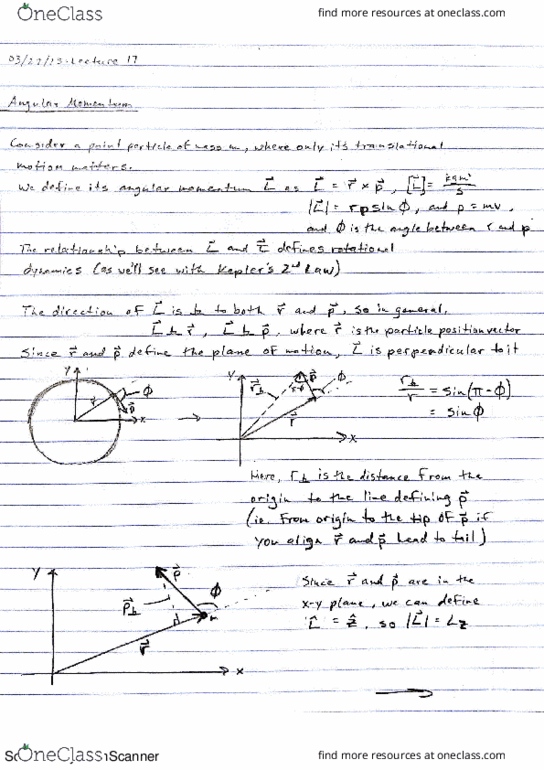 OneClass
find more resources at oneclass.com
03/22/13-Lecture 17
Angular Momentum
Consider a point particle of mass m, where only its translational
motion matters.
We define its angular momentum L⃗ as L⃗ = r⃗ × p⃗ , [L⃗] = kgm²/s
|L⃗| = rpsinϕ, and p=mv,
and ϕ is the angle between r and p
The relationship between L⃗ and τ⃗ defines rotational
dynamics (as we'll see with Kepler's 2nd Law)
The direction of L⃗ is ⊥ to both r⃗ and p⃗, so in general,
L⃗ ⊥ r⃗, L⃗ ⊥ p⃗, where r⃗ is the particle position vector
Since r⃗ and p⃗ define the plane of motion, L⃗ is perpendicular to it
y r ϕ p⃗ x
→
y r⃗⊥ p⃗ ϕ r⃗ x
r⊥/r = sin(π-ϕ)
= sinϕ
Here, r⊥ is the distance from the
origin to the line defining p⃗
(ie. From origin to the tip of p⃗ if
you align r⃗ and p⃗ head to tail)
y p⃗ p⃗⊥ ϕ m r⃗ x
Since r⃗ and p⃗ are in the
x-y plane, we can define
L̂ = ẑ, so |L⃗| = Lz
OneClass
Scanner
find more resources at oneclass.com